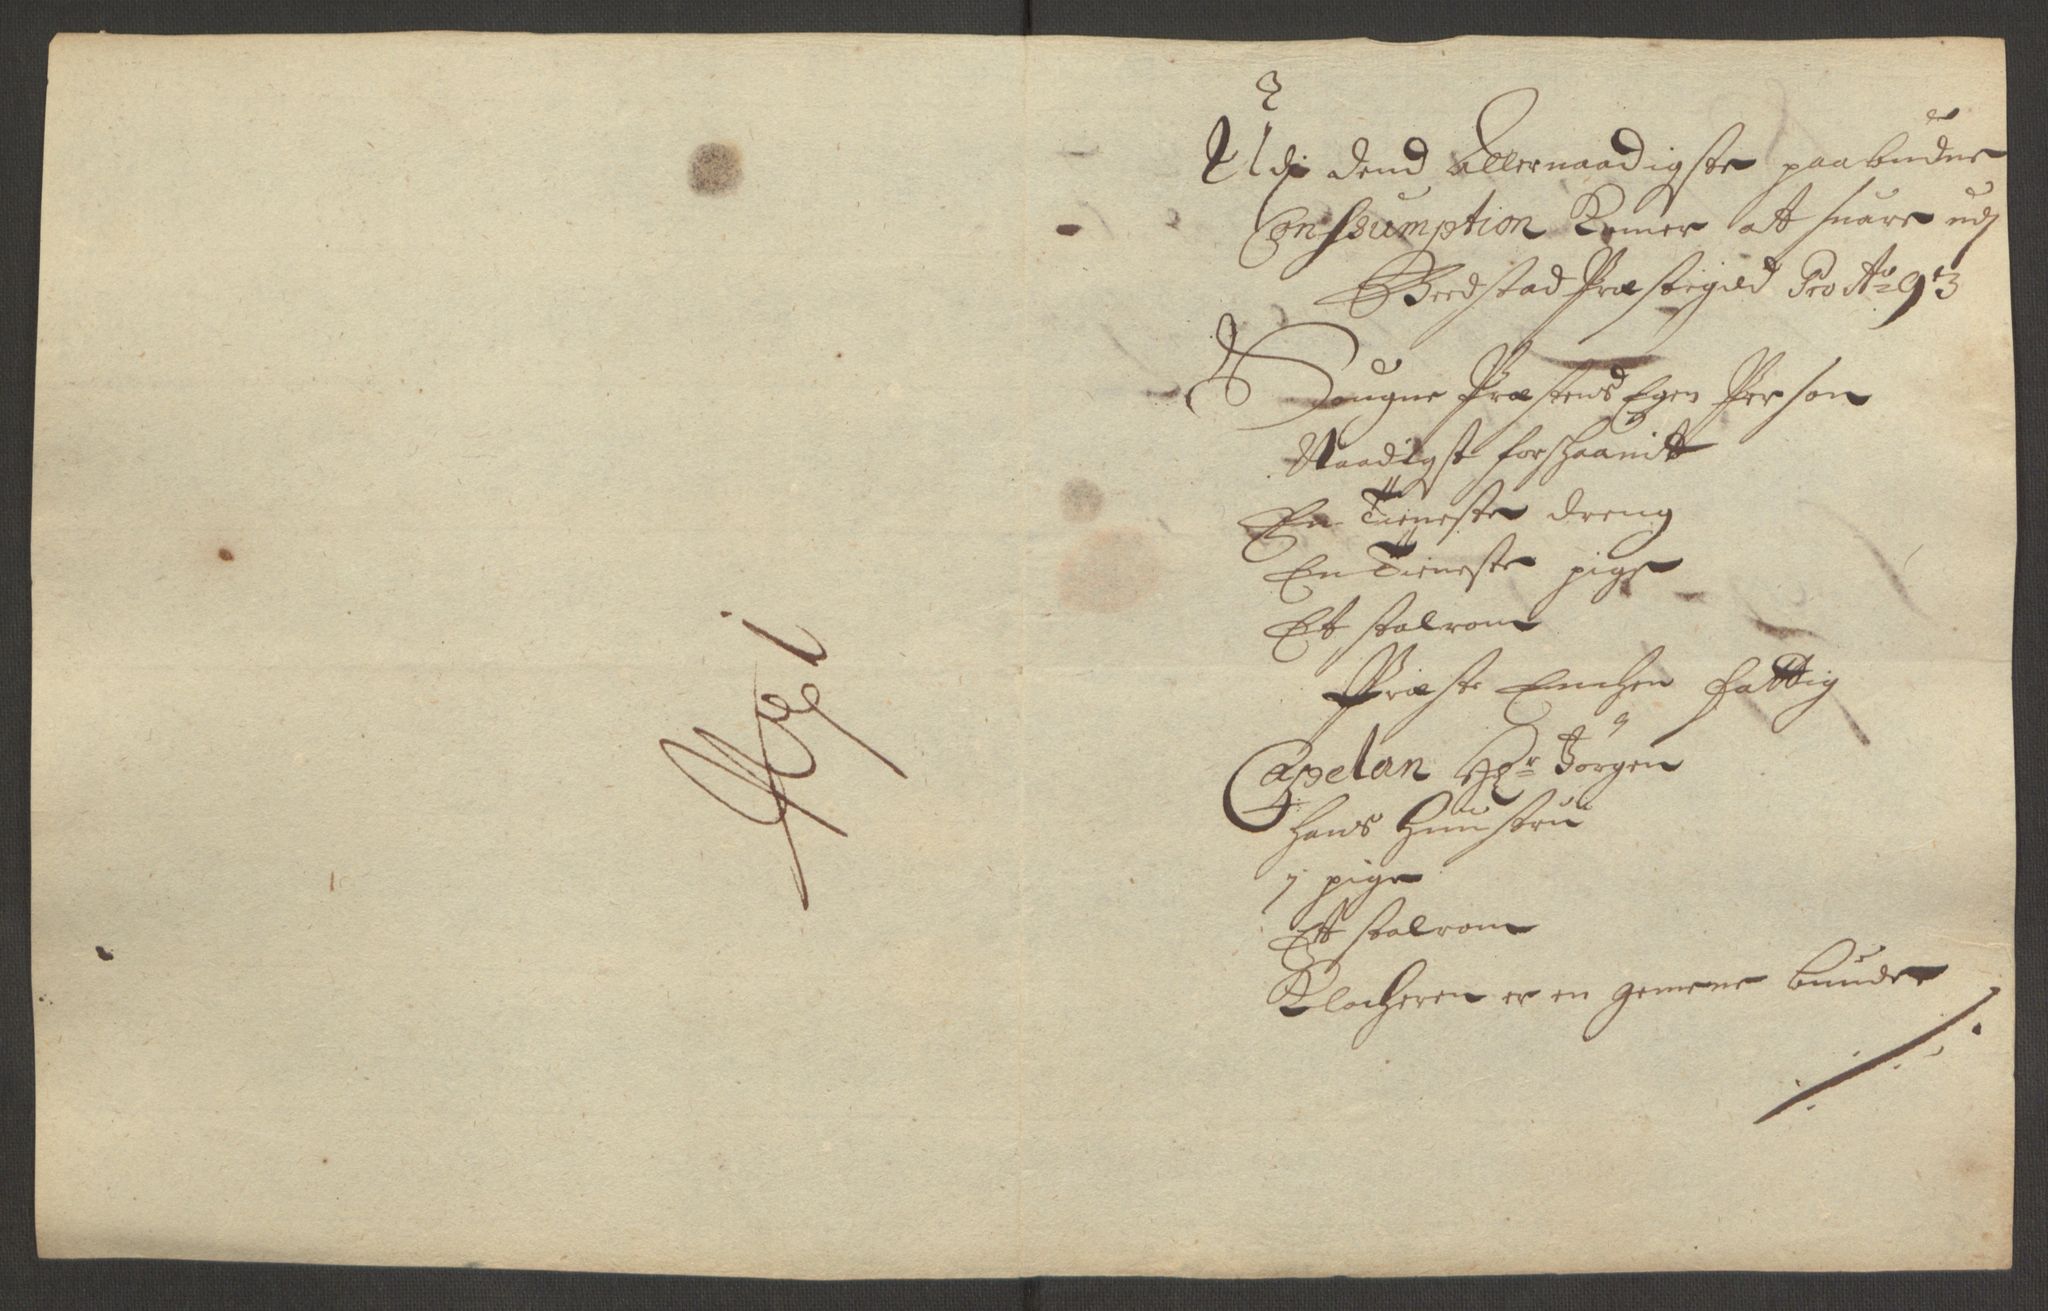 Udi dend Allernaadigste paabudne
Conssumption Komer att suare udj
Bredstad Præstegield Pro Ao 93
Sougne Præstens Egen Person
Naadigst forschaanit
En Tieneste dreng
En Tieneste pige
Et stalrom
Præste Enchen fattig
Capelan Hr Jörgen
hans Huustru
1 pige
Et stalrom
Klocheren er en gemene bunde